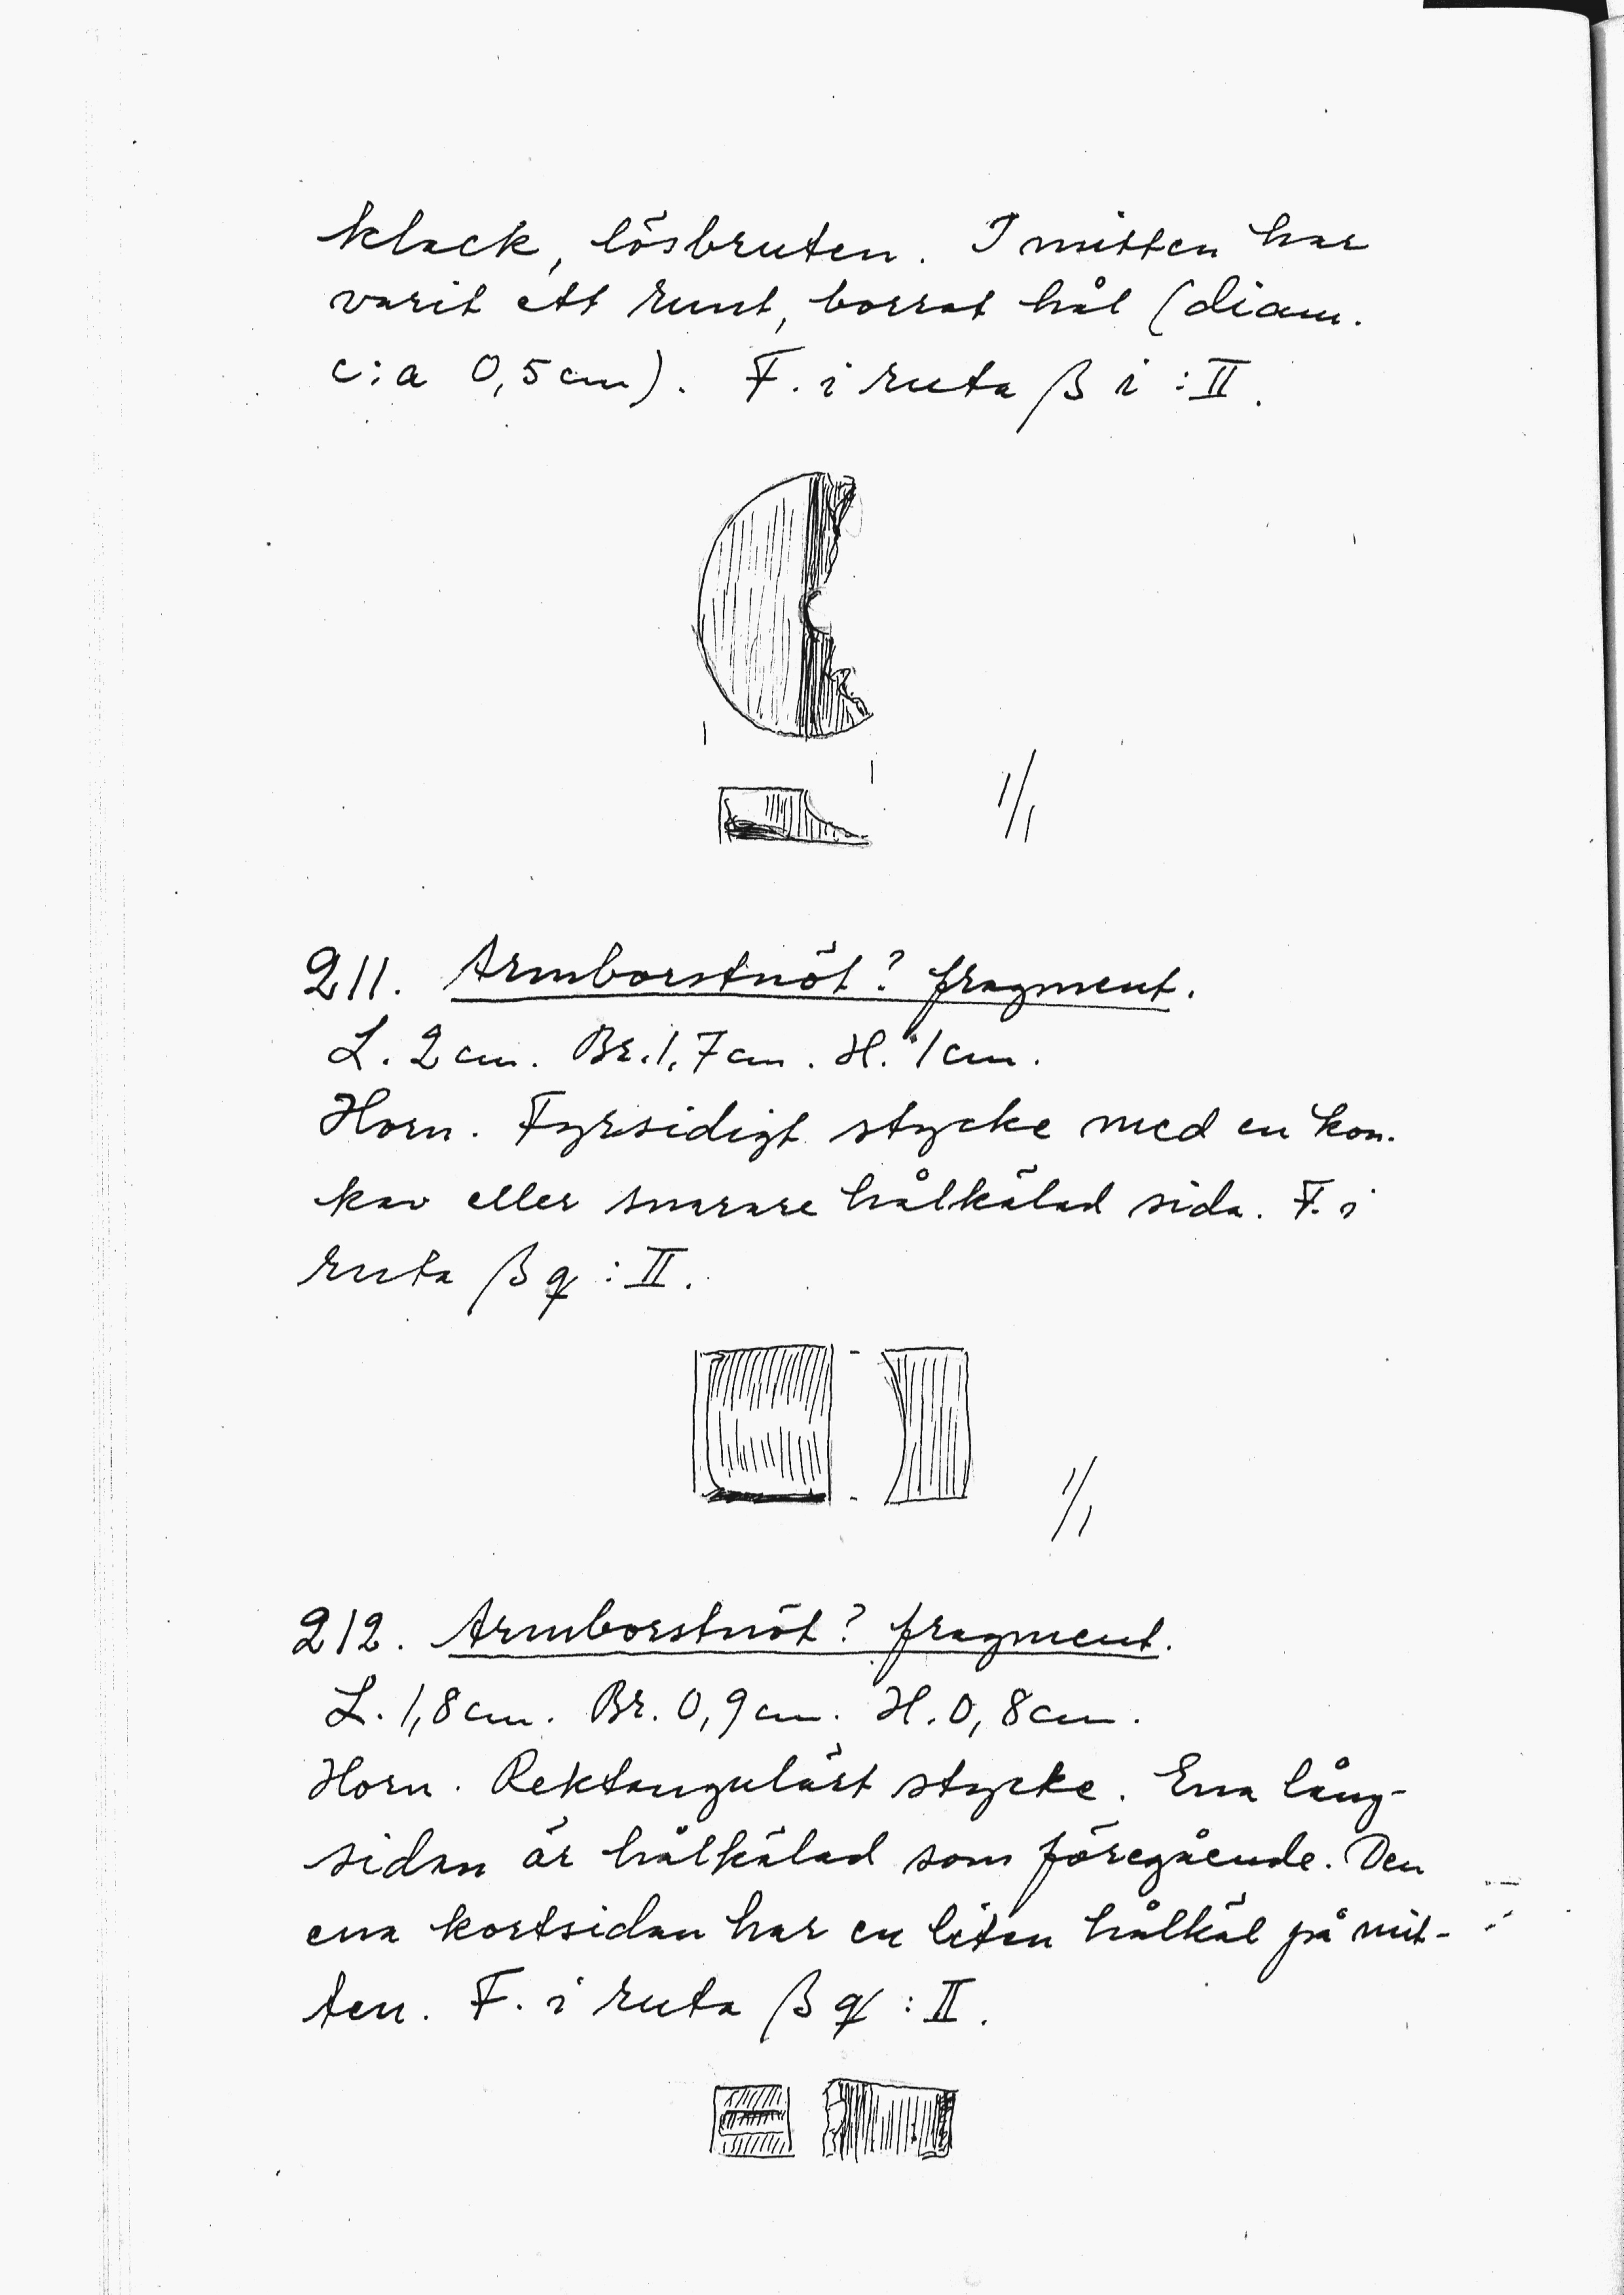 klack, lösbruten. I mitten har
varit ett runt, borrat hål (diam.
c:a 0,5 cm). F. i ruta β i : II.
1/1
211. Armborstnöt? fragment.
L. 2 cm. Br. 1,7 cm. H. 1 cm.
Horn. Fyrsidigt stycke med en kon-
kav eller snarare hålkälad sida. F. i
ruta β q : II.
1/1
212. Armborstnöt? fragment.
L. 1,8 cm. Br. 0,9 cm. H. 0,8 cm.
Horn. Rektangulärt stycke. Ena lång-
sidan är hålkälad som föregående. Den
ena kortsidan har en liten hålkäl på mit-
ten. F. i ruta β q : II.